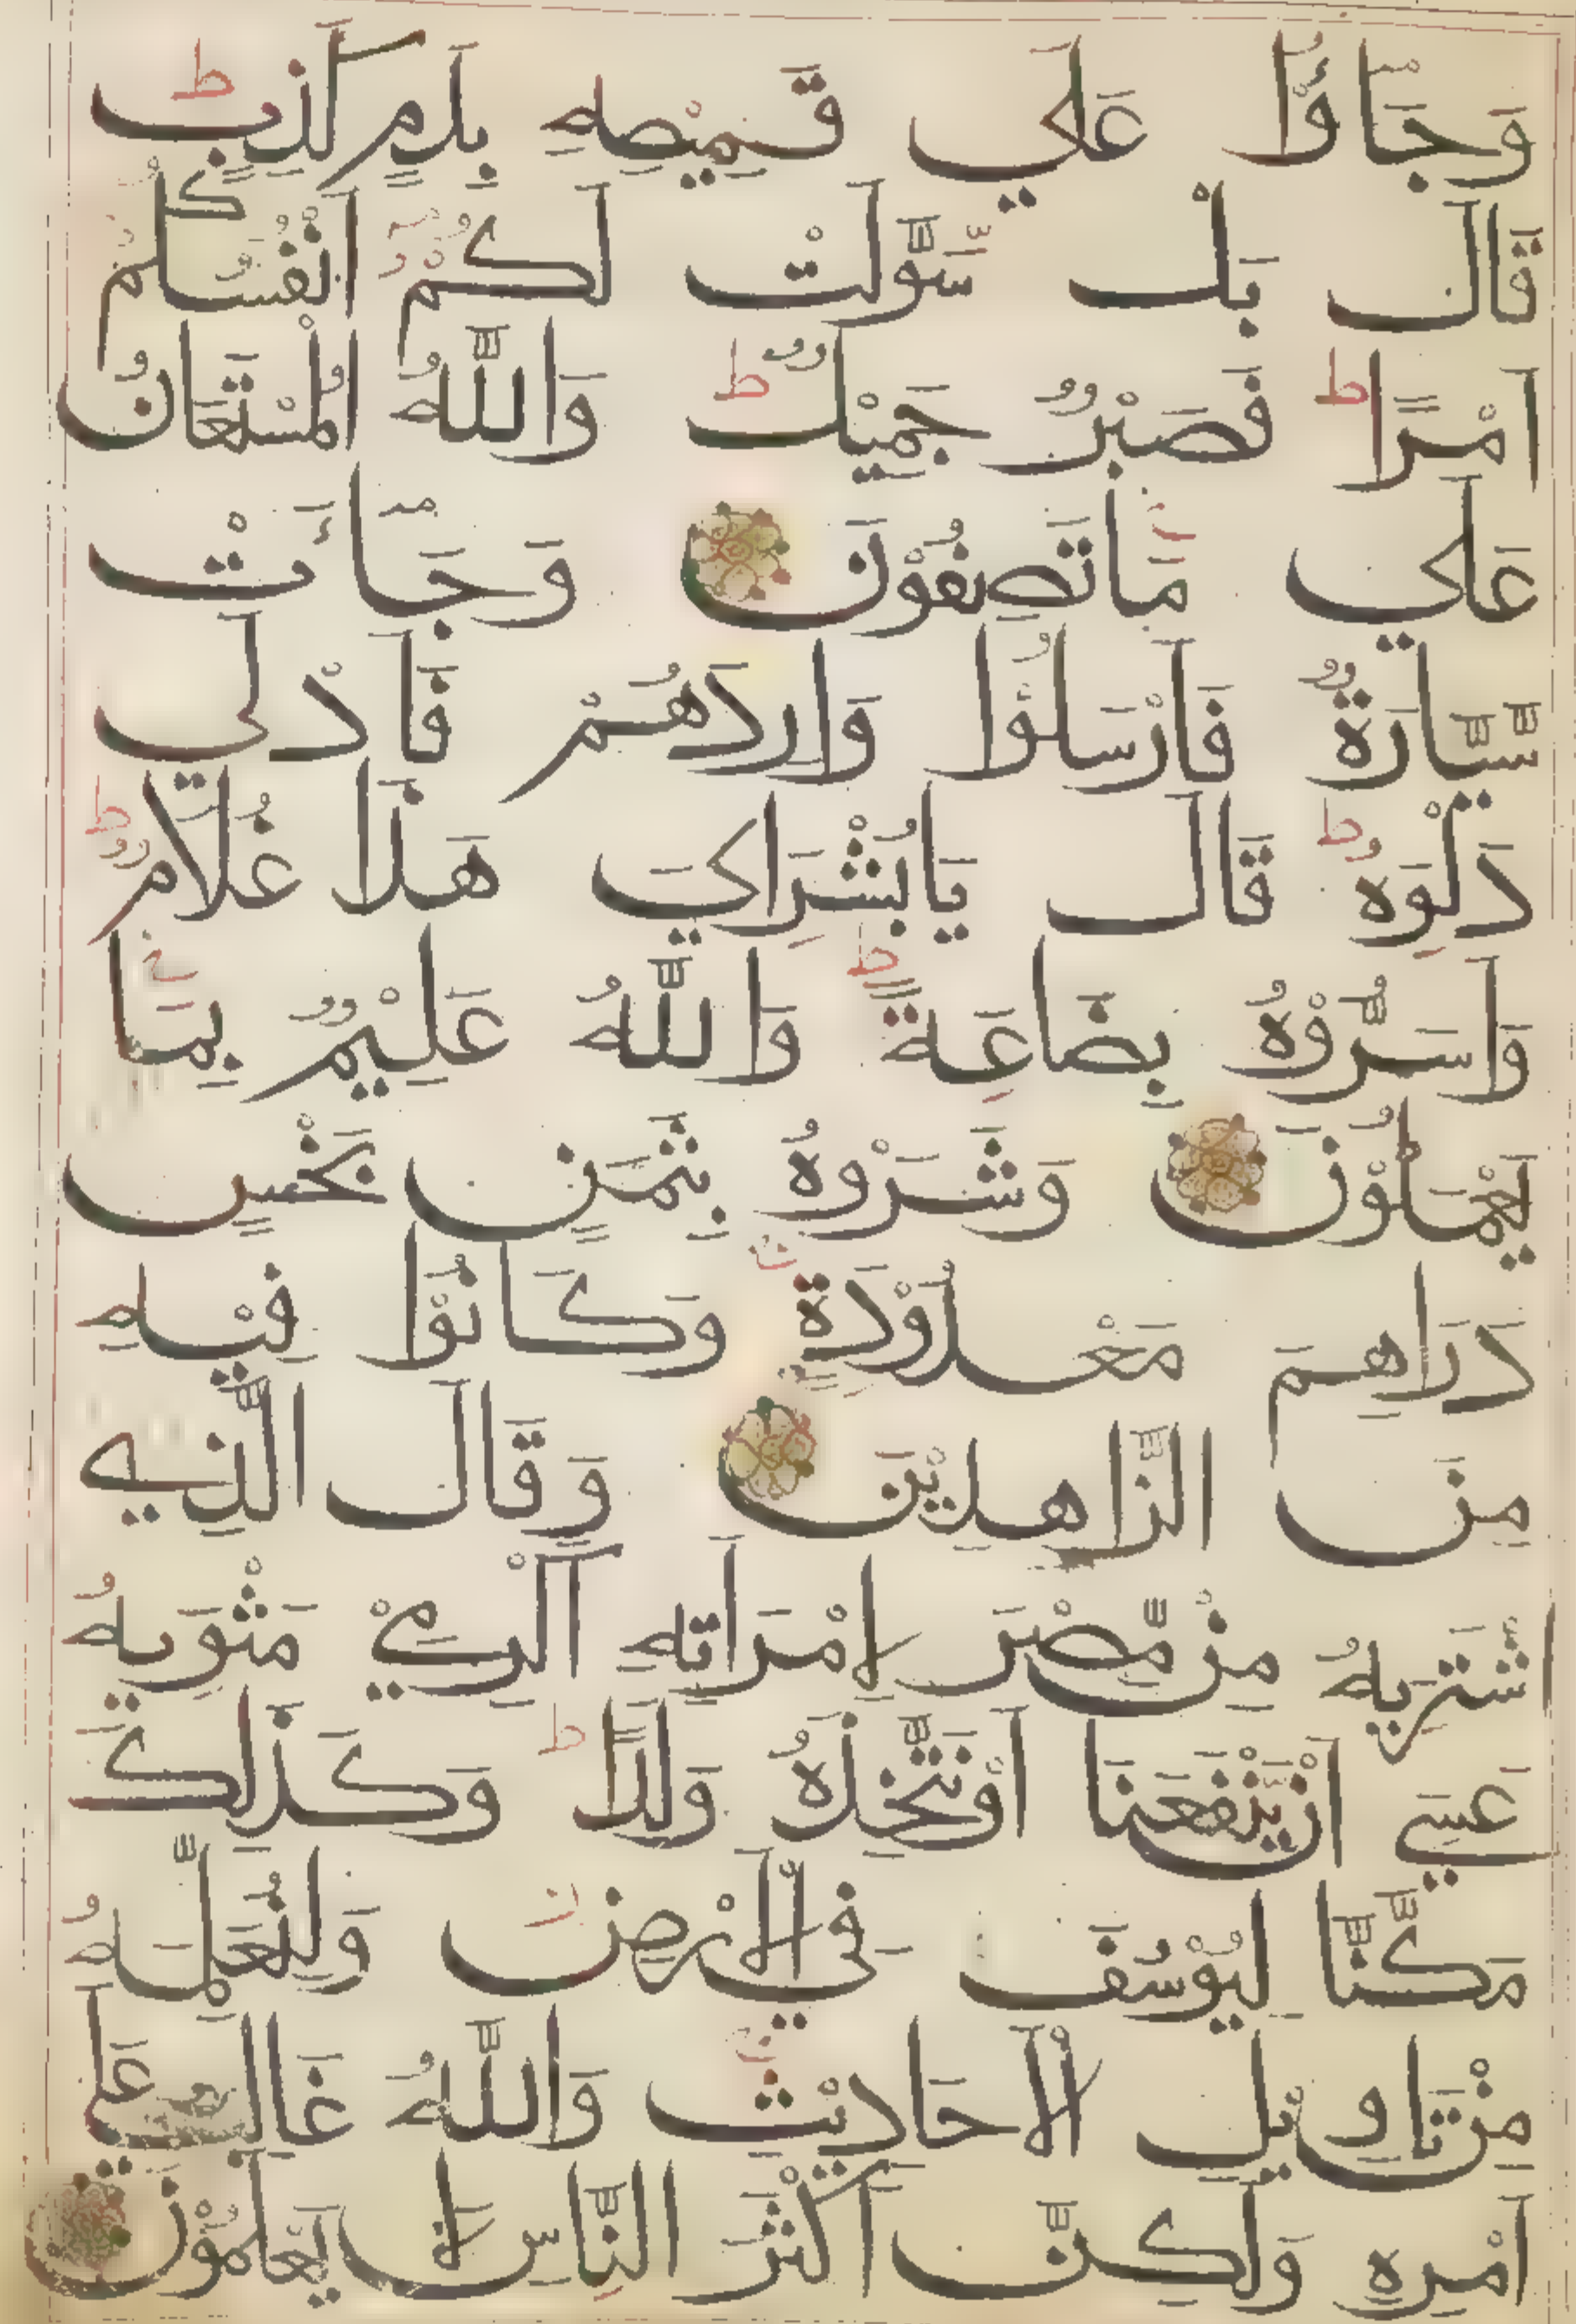 وَجَاؤُا عَلٰي قَمِيْصِهٖ بِدَمٍ كَذِبٍ ط
قَالَ بَلْ سَّوَّلَتْ لَكُمْ اَنْفُسُكُمْ
اَمْرًا ط فَصَبْرٌ جَمِيْلٌ ط وَاللّٰهُ الْمُسْتَعَانُ
عَلٰي مَا تَصِفُوْنَ وَجَاءَتْ
سَّيَّارَةٌ فَاَرْسَلُوْا وَارِدَهُمْ فَاَدْلٰي
دَلْوَهٗ ط قَالَ يَابُشْرَايَ هٰذَا غُلَامٌ ط
وَاَسَرُّوْهُ بِضَاعَةً ط وَاللّٰهُ عَلِيْمٌ بِمَا
يَعْمَلُوْنَ وَشَرَوْهُ بِثَمَنٍ بَخْسٍ
دَرَاهِمَ مَعْدُوْدَةٍ وَكَانُوْا فِيْهِ
مِنَ الزَّاهِدِيْنَ وَقَالَ الَّذِي
اشْتَرٰيهُ مِنْ مِّصْرَ لِامْرَاَتِهٖ اَكْرِمِيْ مَثْوٰيهُ
عَسٰي اَنْ يَّنْفَعَنَا اَوْ نَتَّخِذَهُ وَلَدًا ط وَكَذٰلِكَ
مَكَّنَّا لِيُوْسُفَ فِي الْاَرْضِ وَلِنُعَلِّمَهُ
مِنْ تَاْوِيْلِ الْاَحَادِيْثِ وَاللّٰهُ غَالِبٌ عَلٰي
اَمْرِهٖ وَلٰكِنَّ اَكْثَرَ النَّاسِ لَا يَعْلَمُوْنَ